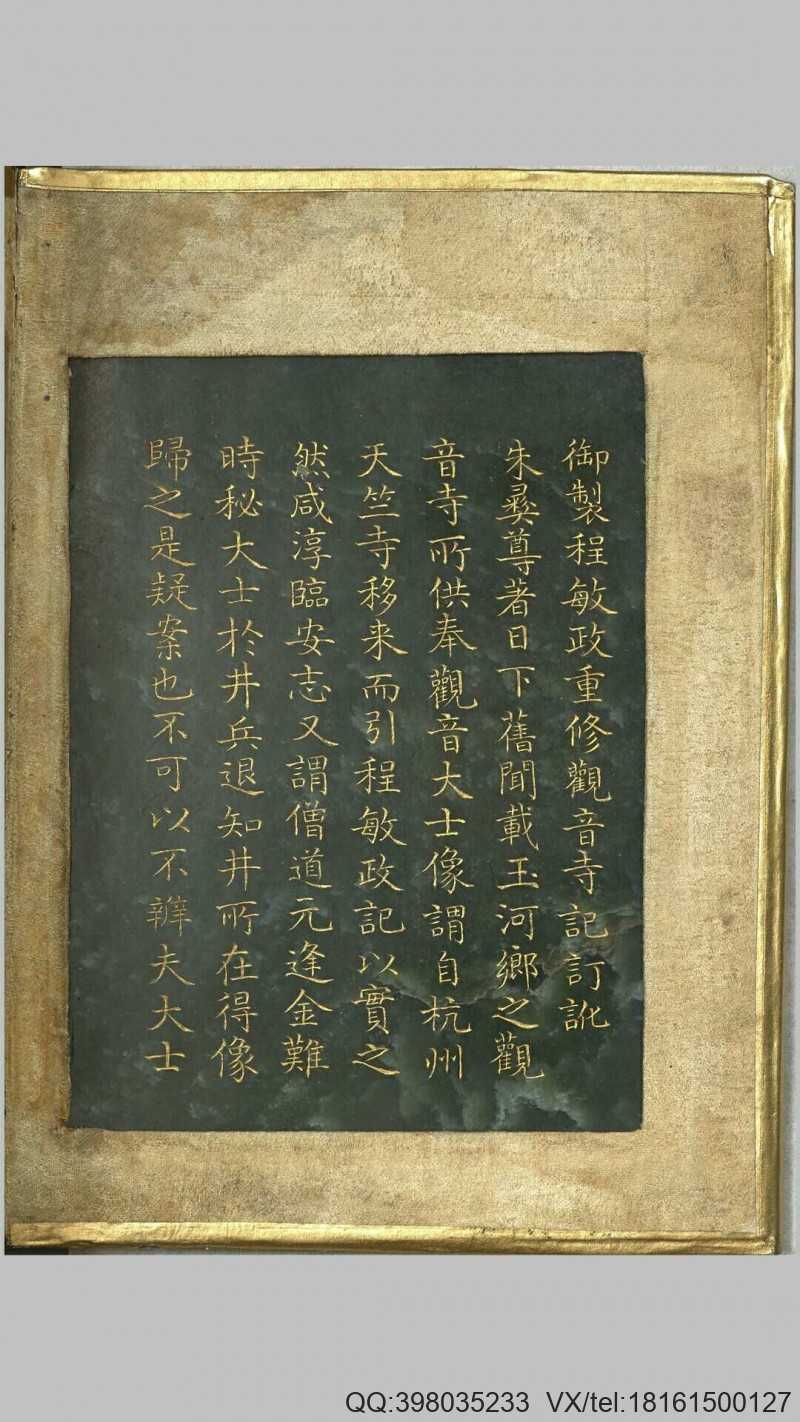 御製程敏政重修觀音寺記訂訛
朱彞尊著日下舊聞載玉河鄉之觀
音寺所供奉觀音大士像謂自杭州
天竺寺移来而引程敏政記以實之
然咸淳臨安志又謂僧道元逢金難
時秘大士於井兵退知井所在得像
歸之是疑案也不可以不辨夫大士
QQ:398035233 VX/tel:18161500127